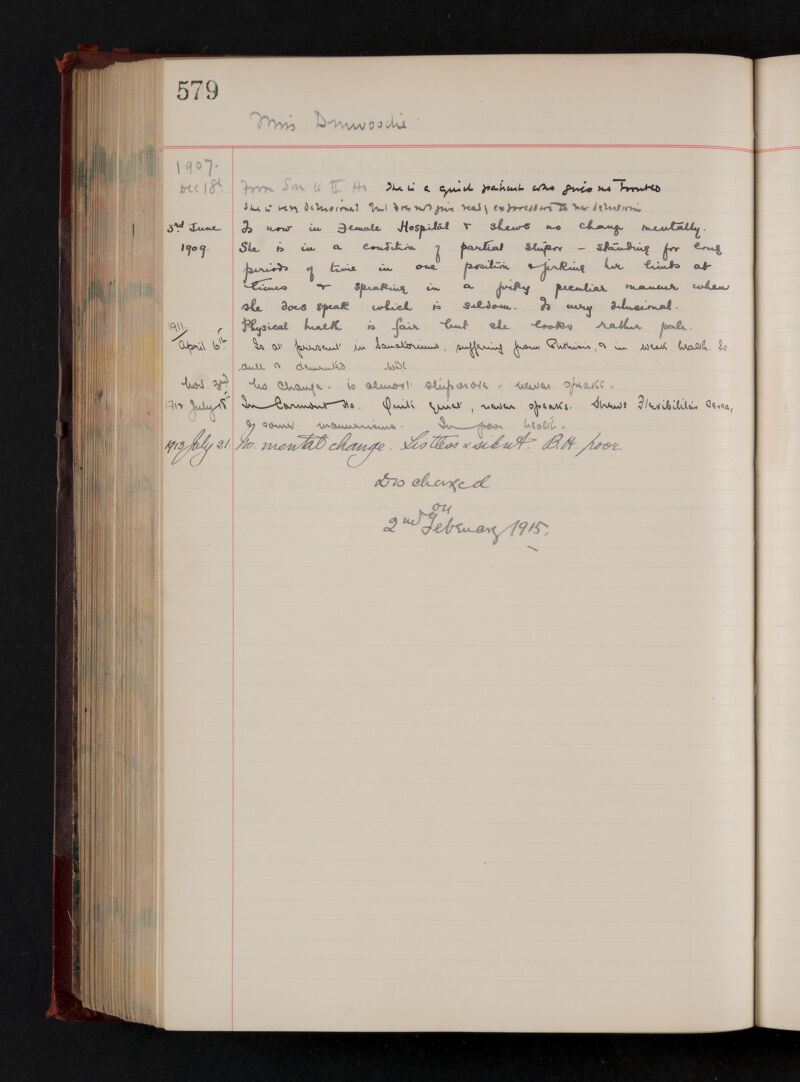 579
Miss Dinwoodie
1907.
Dec 18th From San to II Ho She is a quiet patient who gives no trouble
She is very delusional but does not give ready expression to her delusions
3rd June Is now in Female Hospital & shews no change mentally.
1909. She is in a condition of partial stupor - standing for long
periods of time in one position & jerking her limbs at
times & speaking in a jerky peculiar manner when
she does speak which is seldom. Is very delusional.
Physical health is fair but she looks rather pale.
1911
April 6th Is at present in Sanatorium, suffering from Phthisis, & in weak health. Is
dull & demented
Nov. 3rd No change. is almost stuporose. never speaks.
1912 July 18th In Carmont Ho. Quite quiet, never speaks. Shews Flexibilitas Cerea,
& some mannerisms. In poor health.
1913 July 21. No mental change. Listless & silent. B.H. poor.
Discharged
on
2nd February 1915.